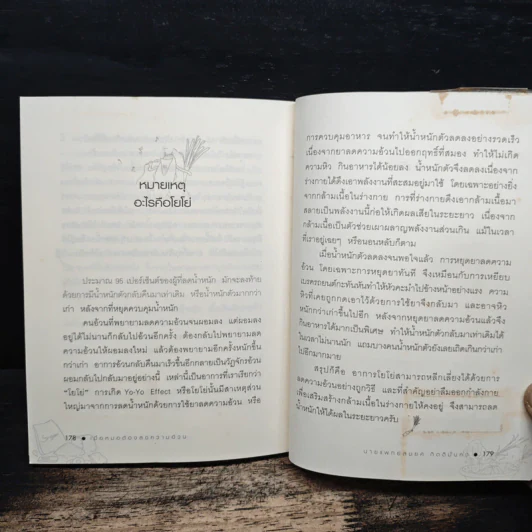 หมายเหตุ
อะไรคือโยโย่
ประมาณ 95 เปอร์เซ็นต์ของผู้ที่ลดน้ำหนัก มักจะลงท้าย
ด้วยการมีน้ำหนักตัวกลับคืนมาเท่าเดิม หรือน้ำหนักตัวมากกว่า
เก่า หลังจากที่หยุดควบคุมน้ำหนัก
คนอ้วนที่พยายามลดความอ้วนจนผอมลง แต่ผอมลง
อยู่ได้ไม่นานก็กลับไปอ้วนอีกครั้ง ต้องกลับไปพยายามลด
ความอ้วนให้ผอมลงใหม่ แล้วต้องพยายามอีกครั้งหนักขึ้นกว่า
เก่า อาการอ้วนกลับคืนมาเร็วขึ้นอีกกลายเป็นวัฏจักรอ้วน
ผอมกลับไปกลับมาอยู่อย่างนี้ เหล่านี้เป็นอาการที่เราเรียกว่า
"โยโย่" การเกิด Yo-Yo Effect หรือโยโย่นั้นมีสาเหตุส่วน
ใหญ่มาจากการลดน้ำหนักด้วยการใช้ยาลดความอ้วน หรือ
178
การควบคุมอาหาร จนทำให้น้ำหนักตัวลดลงอย่างรวดเร็ว
เนื่องจากยาลดความอ้วนไปออกฤทธิ์ที่สมอง ทำให้ไม่เกิด
ความหิว กินอาหารได้น้อยลง น้ำหนักตัวจึงลดลงเนื่องจาก
ร่างกายได้ดึงเอาพลังงานที่สะสมอยู่มาใช้ โดยเฉพาะอย่างยิ่ง
จากกล้ามเนื้อในร่างกาย การที่ร่างกายดึงเอากล้ามเนื้อมา
สลายเป็นพลังงานนี้ก่อให้เกิดผลเสียในระยะยาว เนื่องจาก
กล้ามเนื้อเป็นตัวช่วยเผาผลาญพลังงานส่วนเกิน แม้ในเวลา
ที่เราอยู่เฉยๆ หรือนอนหลับก็ตาม
เมื่อน้ำหนักตัวลดลงจนพอใจแล้ว การหยุดยาลดความ
อ้วน โดยเฉพาะการหยุดยาทันที จึงเหมือนกับการเหยียบ
เบรครถยนต์กะทันหันทำให้หัวคะมำไปข้างหน้าอย่างแรง ความ
หิวที่เคยถูกกดเอาไว้ด้วยการใช้ยาจึงกลับมา และอาจหิว
หนักกว่าเก่าขึ้นไปอีก หลังจากหยุดยาลดความอ้วนแล้วจึง
กินอาหารได้มากเป็นพิเศษ ทำให้น้ำหนักตัวกลับมาเท่าเดิมได้
ในเวลาไม่นานนัก แถมบางคนน้ำหนักตัวยังเลยเถิดเกินกว่าเก่า
ไปอีกมากมาย
สรุปก็คือ อาการโยโย่สามารถหลีกเลี่ยงได้ด้วยการ
ลดความอ้วนอย่างถูกวิธี และที่สำคัญอย่าลืมออกกำลังกาย
เพื่อเสริมสร้างกล้ามเนื้อในร่างกายให้คงอยู่ จึงสามารถลด
น้ำหนักให้ได้ผลในระยะยาวครับ
179